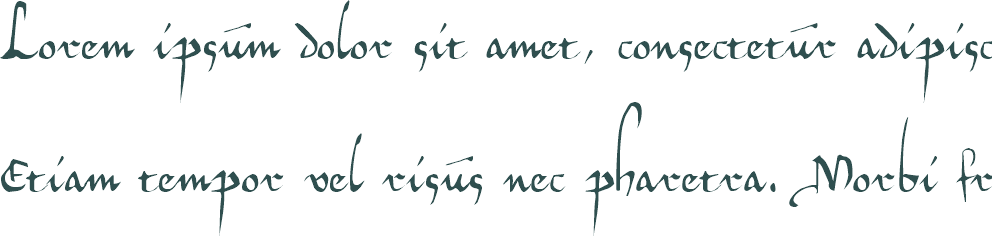 Lorem ipsūm dolor sit amet, consectetūr adipisc
Etiam tempor vel risūs nec pharetra. Morbi fr